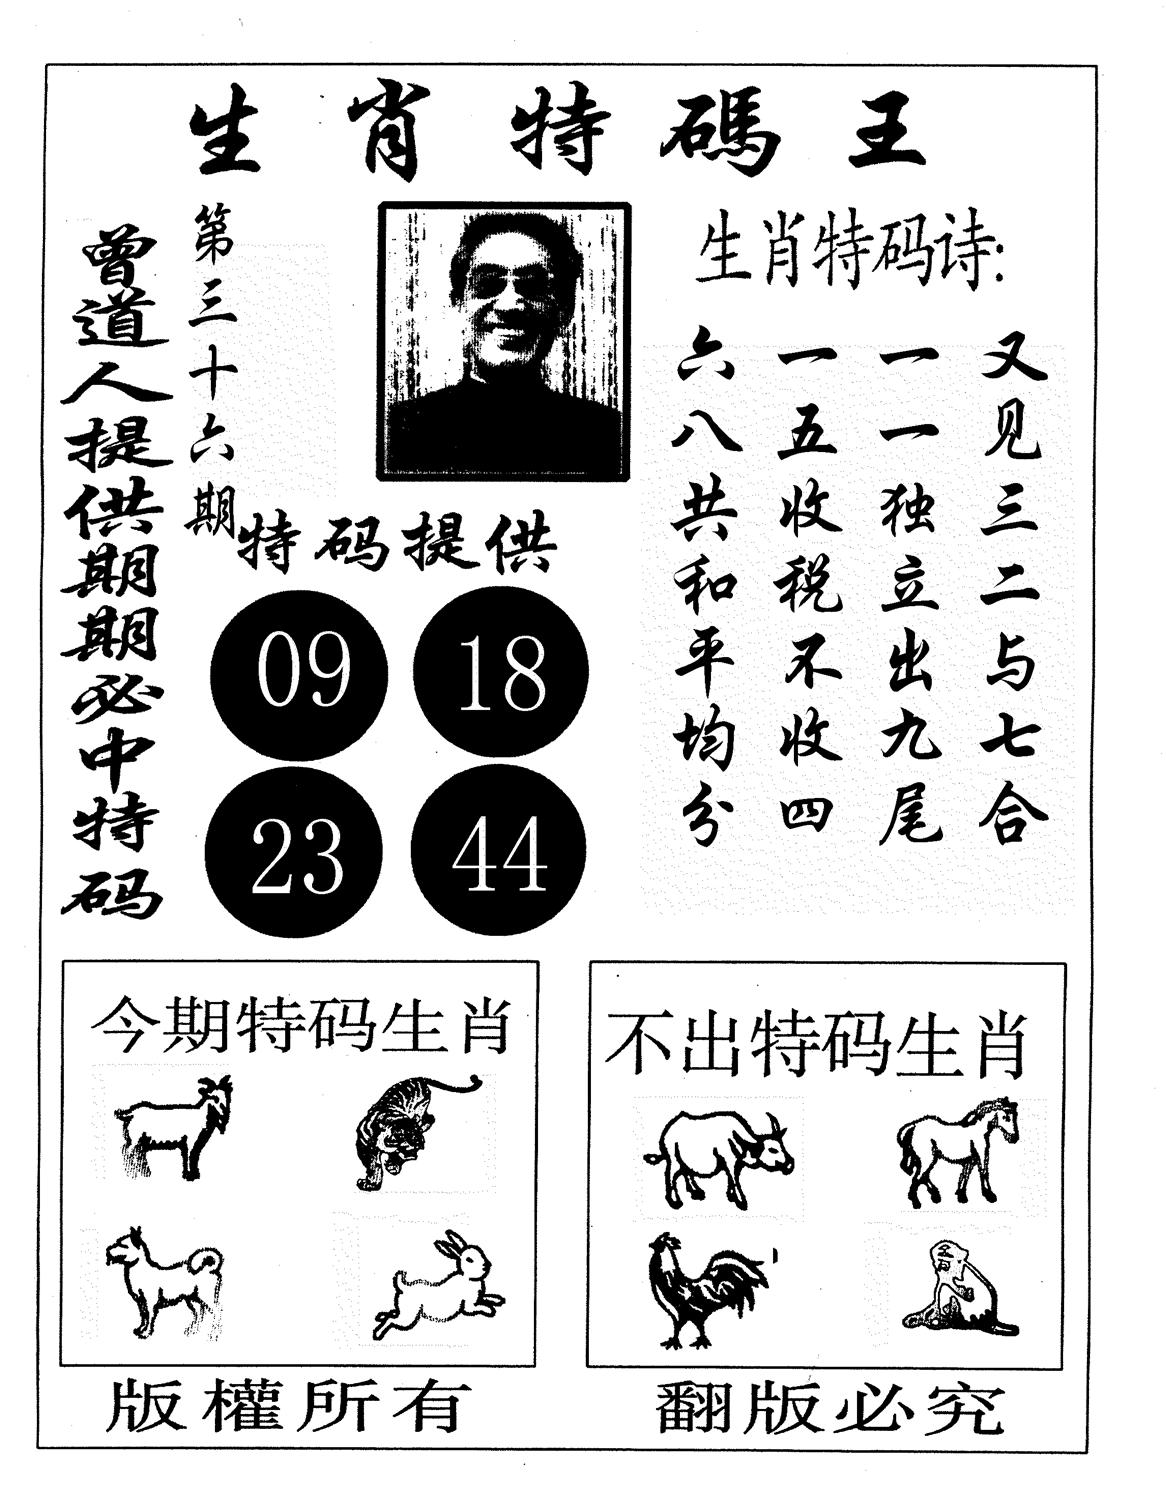 生肖特碼王
曾道人提供期期必中特码
第三十六期
特码提供
09 18
23 44
生肖特码诗:
又见三二与七合
一一独立出九尾
一五收税不收四
六八共和平均分
今期特码生肖
不出特码生肖
版權所有
翻版必究